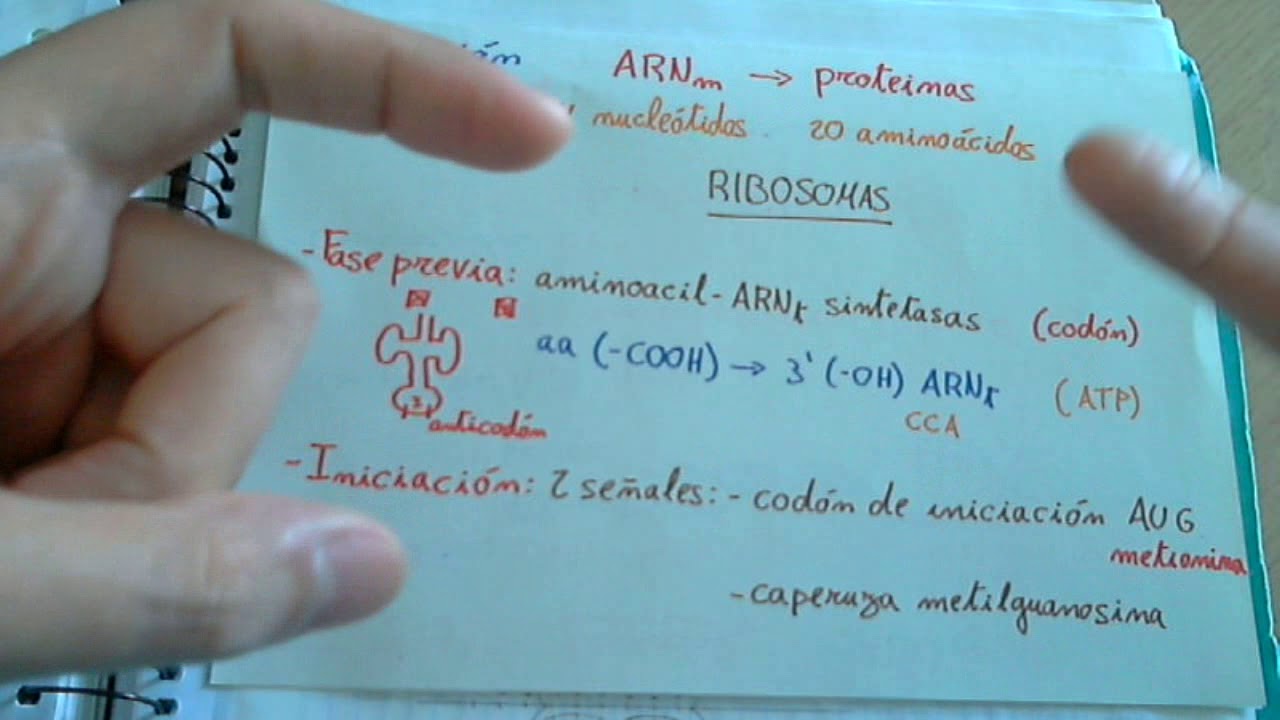 ARNm → proteinas
nucleótidos 20 aminoácidos
RIBOSOMAS
- Fase previa: aminoacil-ARNt sintetasas (codón)
aa (-COOH) → 3' (-OH) ARNt (ATP)
CCA
anticodón
- Iniciación: 2 señales: - codón de iniciación AUG
metionina
- caperuza metilguanosina